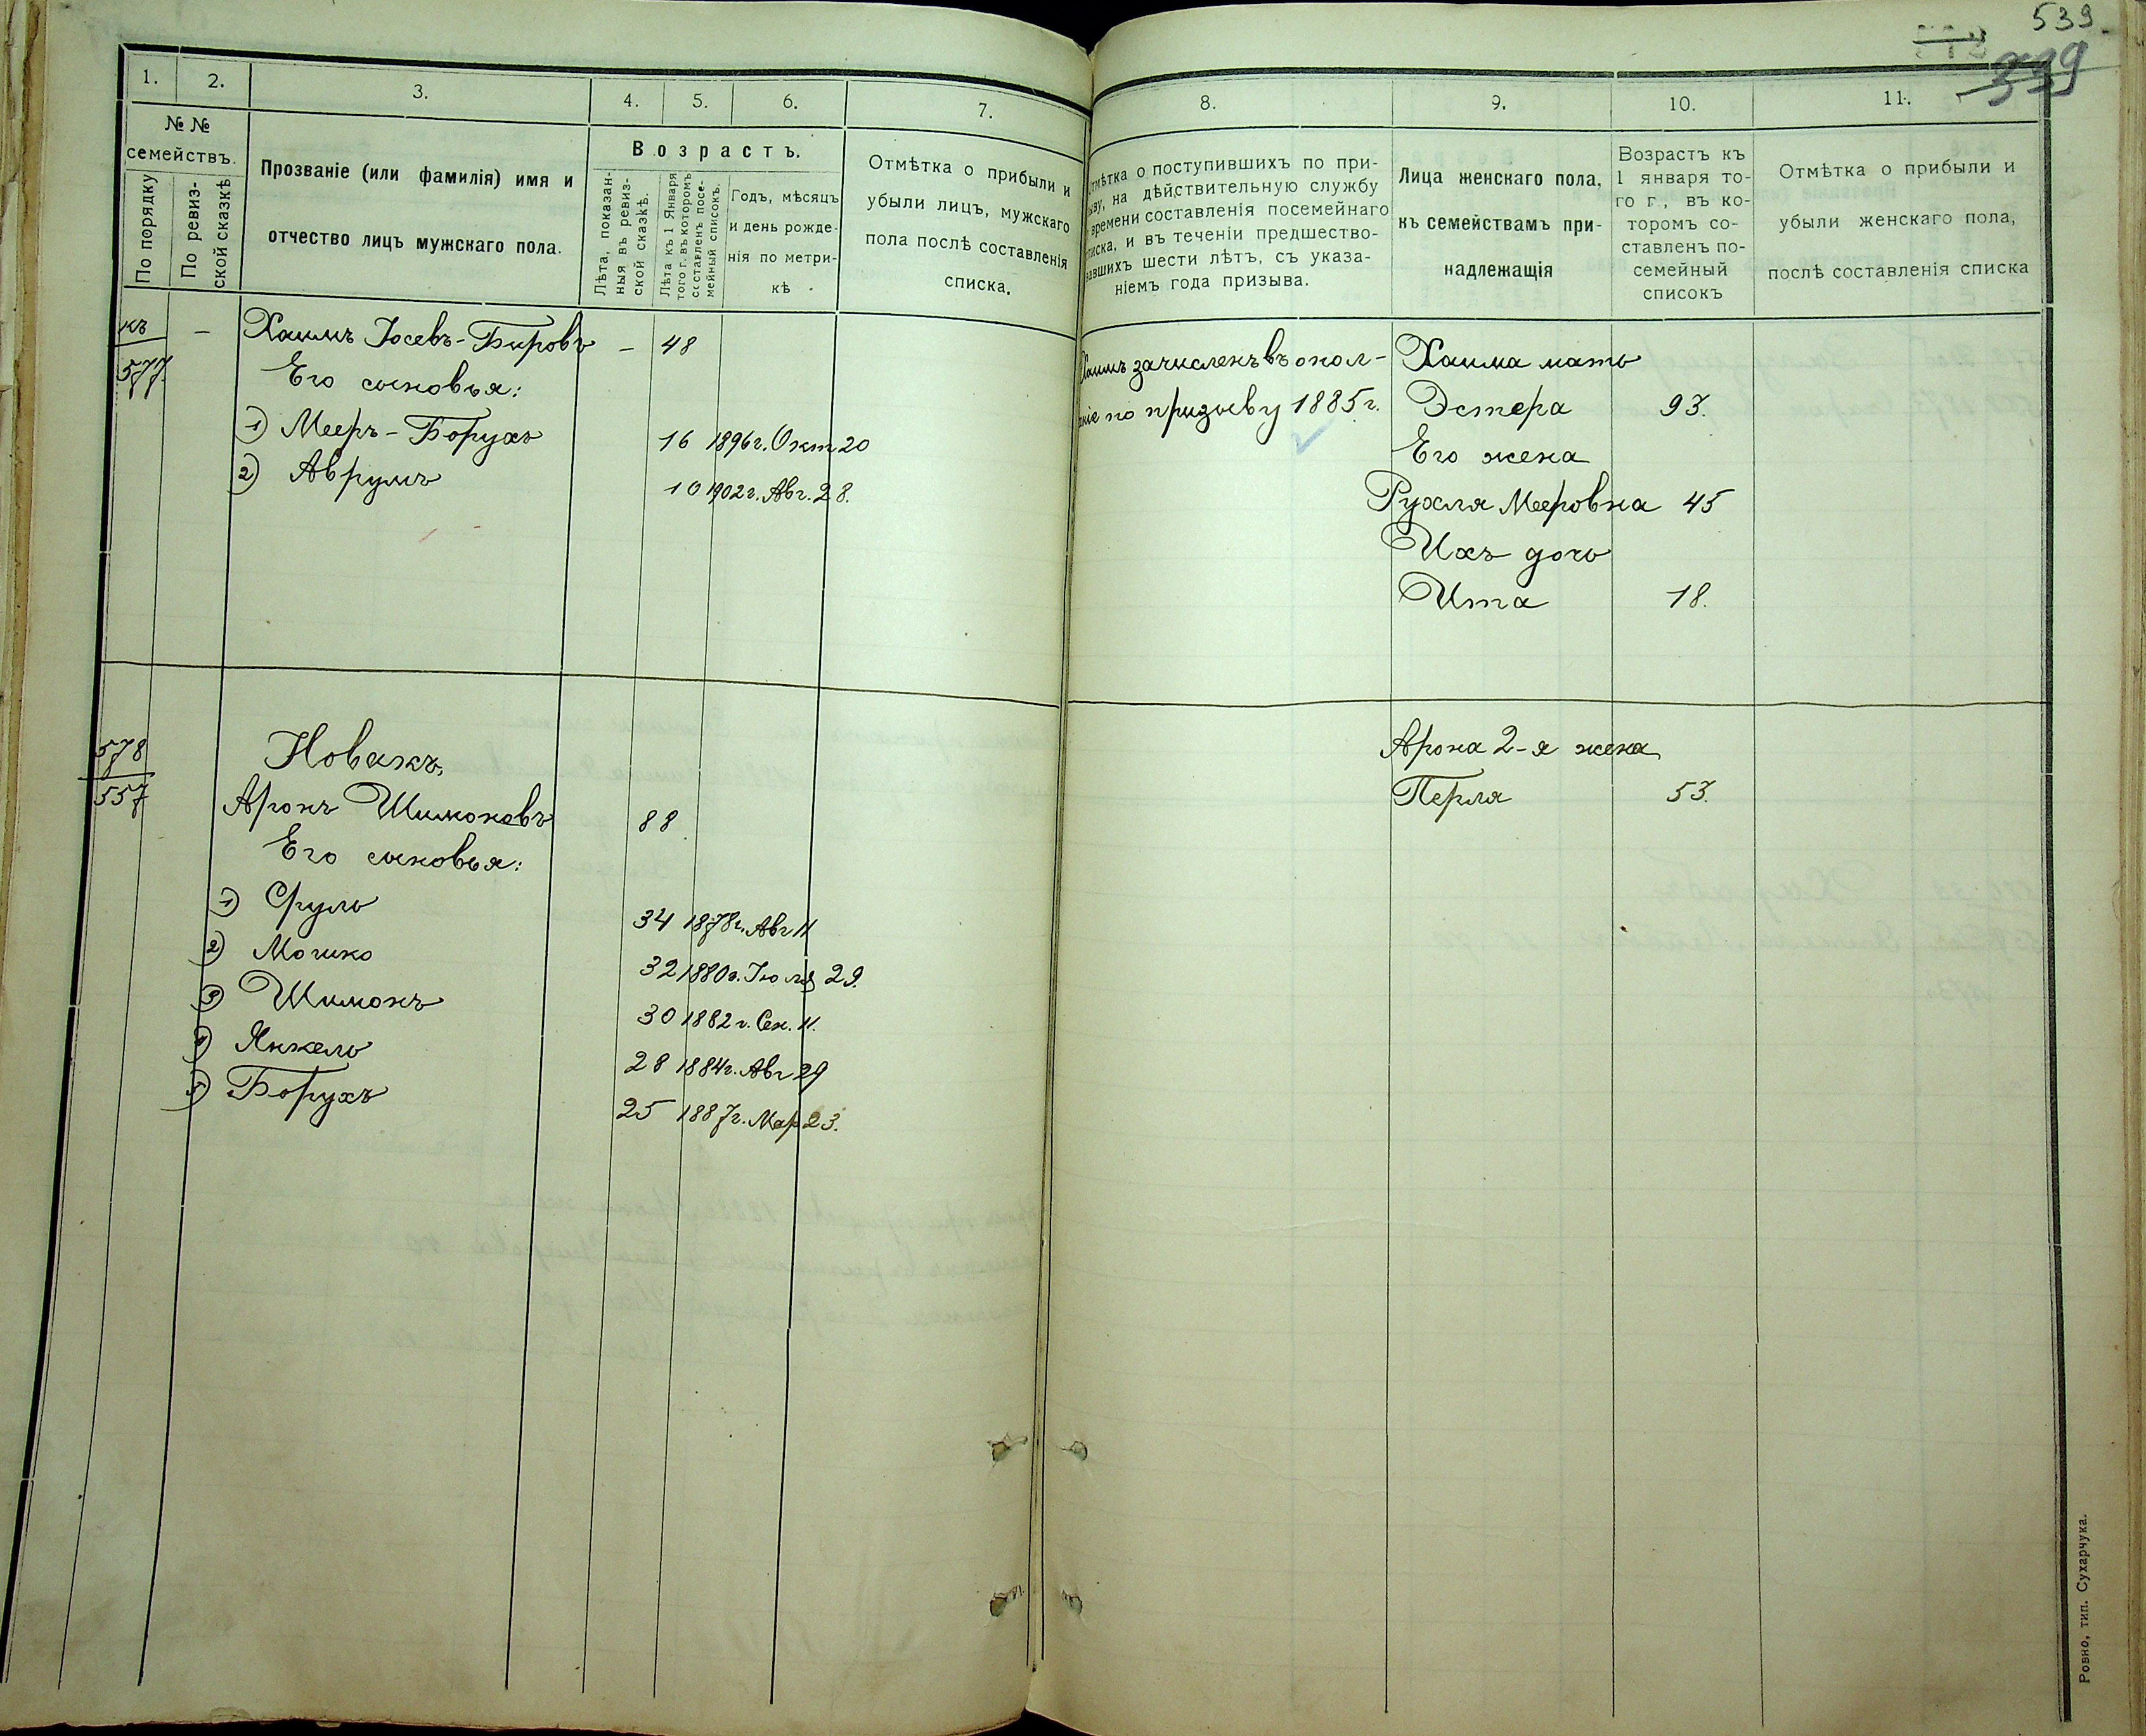 539
339
1.
2.
3.
4.
5.
6.
7.
№ №
семействъ.
По порядку
По ревиз-
ской сказкѣ
Прозваніе (или фамилія) имя и
отчество лицъ мужскаго пола.
Возрастъ.
Лѣта, показан-
ныя въ ревиз-
ской сказкѣ.
Лѣта къ 1 Января
того г. въ которомъ
составленъ посе-
мейный списокъ.
Годъ, мѣсяцъ
и день рожде-
нія по метри-
кѣ
Отмѣтка о прибыли и
убыли лицъ, мужскаго
пола послѣ составленія
списка.
къ
577.
—
Хаимъ Іосевъ-Бировъ — 48
Его сыновья:
1) Мееръ-Борухъ 16 1896г. Окт 20
2) Аврумъ 10 1902г. Авг. 28.
578
557
Новакъ,
Аронъ Шимоновъ 88
Его сыновья:
1) Сруль 34 1878г. Авг 11
2) Мошко 32 1880г. Іюля 29.
3) Шимонъ 30 1882 г. Сен. 11.
4) Янкель 28 1884г. Авг 29
5) Борухъ 25 1887г. Мар 23.
8.
9.
10.
11.
отмѣтка о поступившихъ по при-
зыву, на дѣйствительную службу
времени составленія посемейнаго
списка, и въ теченіи предшество-
вавшихъ шести лѣтъ, съ указа-
ніемъ года призыва.
Лица женскаго пола,
къ семействамъ при-
надлежащія
Возрастъ къ
1 января то-
го г., въ ко-
торомъ со-
ставленъ по-
семейный
списокъ
Отмѣтка о прибыли и
убыли женскаго пола,
послѣ составленія списка
Хаимъ зачисленъ въ опол-
ніе по призыву 1885г.
Хаима мать
Эстера 93.
Его жена
Рухля Мееровна 45
Ихъ дочь
Ита 18.
Арона 2-я жена
Перля 53.
Ровно, тип. Сухарчука.